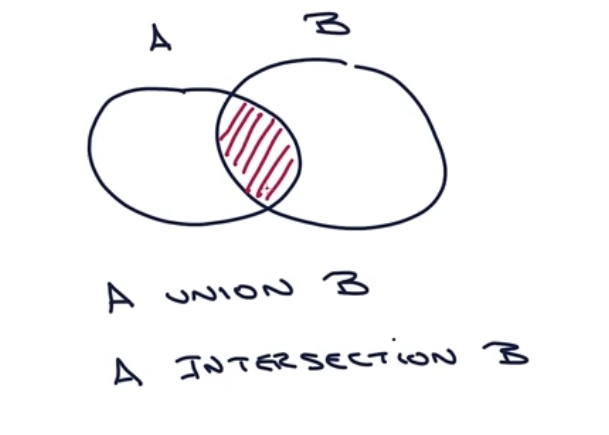 A B
A UNION B
A INTERSECTION B